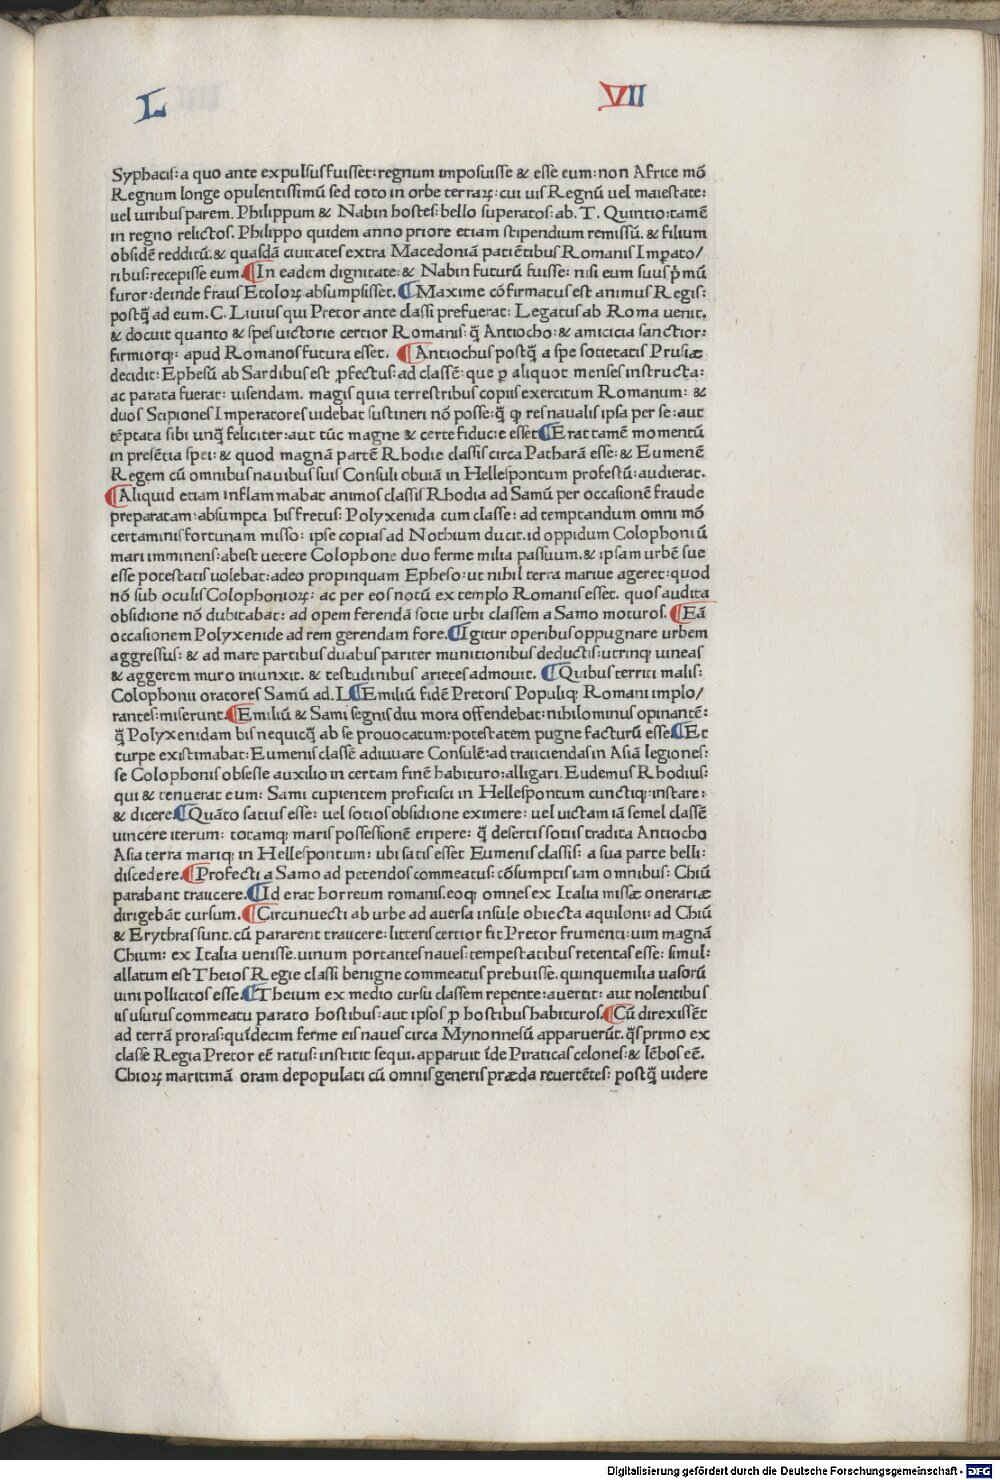 L VII
Syphacis: a quo ante expulsus fuisset: regnum imposuisse & esse eum: non Africe mō
Regnum longe opulentissimū sed toto in orbe terraꝝ: cui uis Regnū uel maiestate:
uel uiribus parem. Philippum & Nabin hostes: bello superatos: ab. T. Quintio: tamē
in regno relictos. Philippo quidem anno priore etiam stipendium remissū. & filium
obsidē redditū: & quasdā ciuitates extra Macedoniā patiētibus Romanis Impato/
ribus: recepisse eum. ¶In eadem dignitate: & Nabin futurū fuisse: nisi eum suus pͥmū
furor: deinde fraus Etoloꝝ absumpsisset. ¶Maxime cōfirmatus est animus Regis:
postq̄ ad eum. C. Liuius qui Pretor ante classi prefuerat: Legatus ab Roma uenit.
& docuit quanto & spes uictorie certior Romanis: q̄ Antiocho: & amicicia sanctior:
firmiorq;: apud Romanos futura esset. ¶Antiochus postq̄ a spe societatis Prusiæ
decidit: Ephesū ab Sardibus est ꝓfectus: ad classē: que ꝑ aliquot menses instructa:
ac parata fuerat: uisendam. magis quia terrestribus copiis exercitum Romanum: &
duos Scipiones Imperatores uidebat sustineri nō posse: q̄ ꝙ res naualis ipsa per se: aut
tēptata sibi unq̄ feliciter: aut tūc magne & certe fiducie esset ¶Erat tamē momentū
in presētia spei: & quod magnā partē Rhodie classis circa Patharā esse: & Eumenē
Regem cū omnibus nauibus suis Consuli obuiā in Hellespontum profestū: audierat.
¶Aliquid etiam inflammabat animos classis Rhodia ad Samū per occasionē fraude
preparatam: absumpta his fretus: Polyxenida cum classe: ad temptandum omni mō
certaminis fortunam misso: ipse copias ad Nothium ducit. id oppidum Colophoniū
mari imminens: abest uetere Colophone duo ferme milia passuum. & ipsam urbē sue
esse potestatis uolebat: adeo propinquam Epheso: ut nihil terra mariue ageret: quod
nō sub oculis Colophonioꝝ: ac per eos notū extemplo Romanis esset. quos audita
obsidione nō dubitabat: ad opem ferendā socie urbi classem a Samo moturos. ¶Eā
occasionem Polyxenide ad rem gerendam fore. ¶Igitur operibus oppugnare urbem
aggressus: & ad mare partibus duabus pariter munitionibus deductis: utrinq; uineas
& aggerem muro iniunxit. & testudinibus arietes admouit. ¶Quibus territi malis:
Colophonii oratores Samū ad. L ¶Emiliū fidē Pretoris Populiq; Romani implo/
rantes: miserunt. ¶Emiliū & Sami segnis diu mora offendebat: nihilominus opinantē:
q̄ Polyxenidam bis nequicq̄ ab se prouocatum: potestatem pugne facturū esse ¶Et
turpe existimabat: Eumenis classē adiuuare Consulē: ad trauciendas in Asiā legiones:
se Colophonis obsesse auxilio in certam finē habituro: alligari. Eudemus Rhodius:
qui & tenuerat eum: Sami cupientem proficisci in Hellespontum cunctiq; instare:
& dicere ¶Quāto satius esse: uel socios obsidione eximere: uel uictam iā semel classē
uincere iterum: totamq; maris possessionē eripere: q̄ desertis sociis tradita Antiocho
Asia terra mariq; in Hellespontum: ubi satis esset Eumenis classis: a sua parte belli:
discedere. ¶Profecti a Samo ad petendos commeatus: cōsumptis iam omnibus: Chiū
parabant traiicere. ¶Id erat horreum romanis. eoq; omnes ex Italia missæ onerariæ
dirigebāt cursum. ¶Circunuecti ab urbe ad auersa insule obiecta aquiloni: ad Chiū
& Erythras sunt. cū pararent traiicere: litteris certior fit Pretor frumenti: uim magnā
Chium: ex Italia uenisse. uinum portantes naues: tempestatibus retentas esse: simul:
allatum est Theios Regie classi benigne commeatus prebuisse. quinquemilia uasorū
uini pollicitos esse. ¶Theium ex medio cursu classem repente: auertit: aut nolentibus
iis usurus commeatu parato hostibus: aut ipsos ꝓ hostibus habituros. ¶Cū direxissēt
ad terrā proras: quīdecim ferme eis naues circa Mynonnesū apparuerūt. q̄s primo ex
classē Regia Pretor eē ratus: institit sequi. apparuit īde Piraticas celones: & lēbos eē.
Chioꝝ maritimā oram depopulati cū omnis generis præda reuertētes: postq̄ uidere
Digitalisierung gefördert durch die Deutsche Forschungsgemeinschaft - DFG